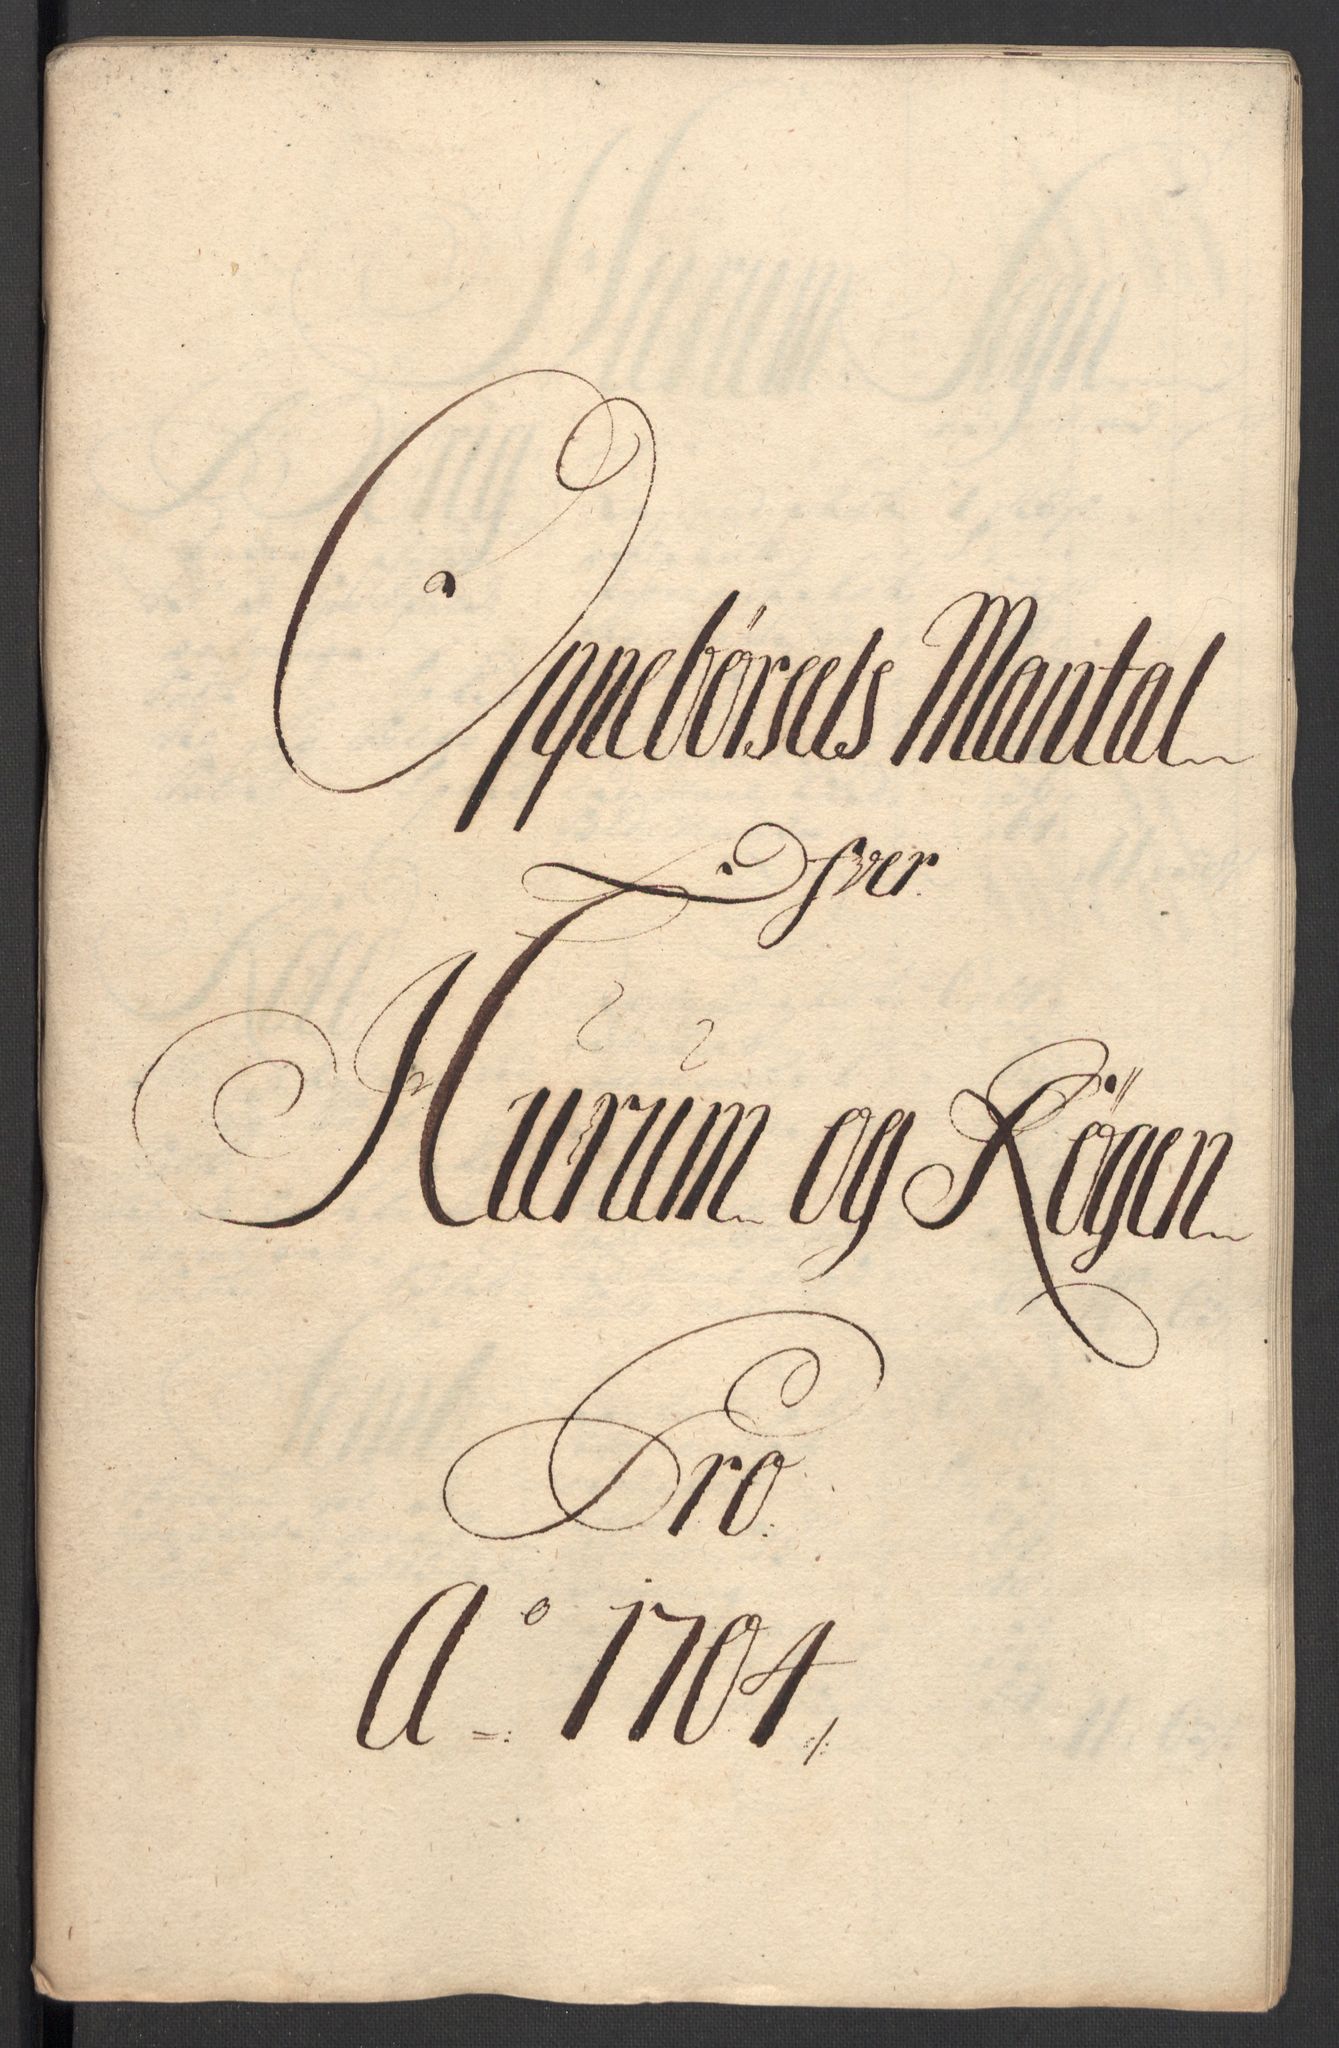 Oppebörsels Mantal
Ofver
Hurum og Rögen
Pro
Ao 1704